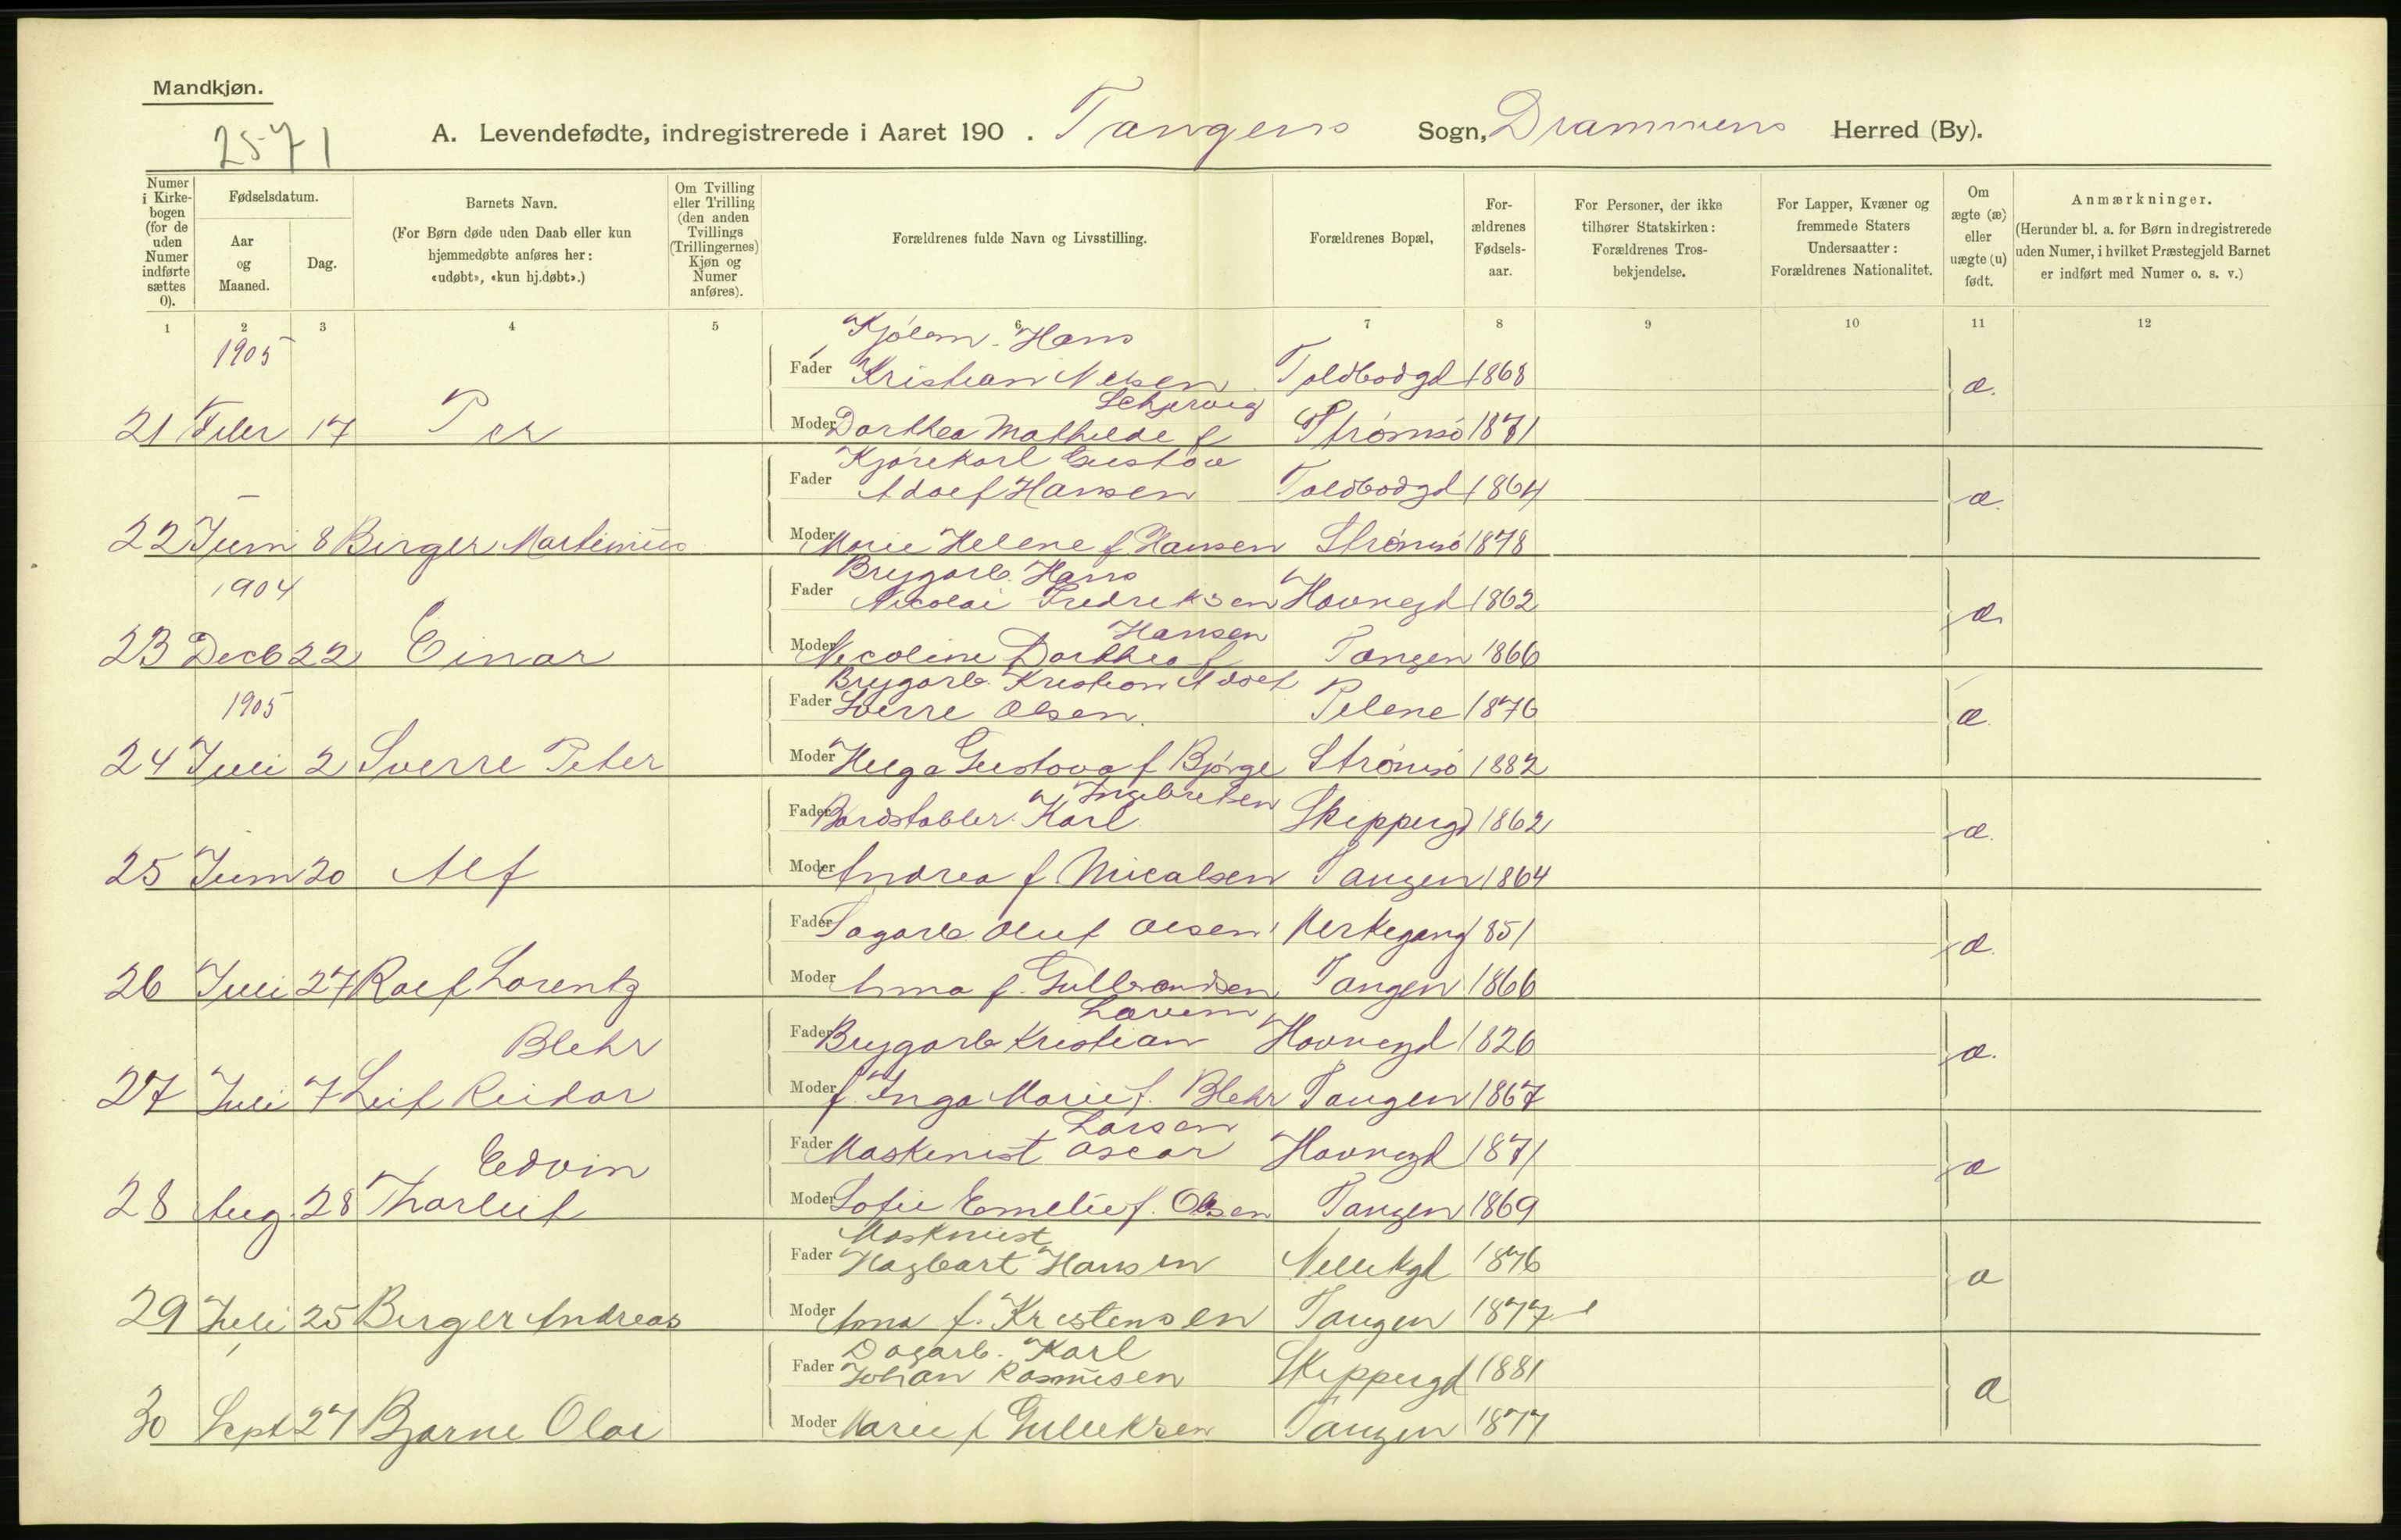 Mandkjøn.
2571
A. Levendefødte, indregistrerede i Aaret 190 . Tangens Sogn, Drammens Herred (By).
Numer i Kirkebogen (for de uden Numer indførte sættes 0).
Fødselsdatum.
Aar og Maaned.
Dag.
Barnets Navn.
(For Børn døde uden Daab eller kun hjemmedøbte anføres her: «udøbt», «kun hj.døbt».)
Om Tvilling eller Trilling (den anden Tvillings (Trillingernes) Kjøn og Numer anføres).
Forældrenes fulde Navn og Livsstilling.
Forældrenes Bopæl,
Forældrenes Fødselsaar.
For Personer, der ikke tilhører Statskirken: Forældrenes Trosbekjendelse.
For Lapper, Kvæner og fremmede Staters Undersaatter: Forældrenes Nationalitet.
Om ægte (æ) eller uægte (u) født.
Anmærkninger.
(Herunder bl. a. for Børn indregistrerede uden Numer, i hvilket Præstegjeld Barnet er indført med Numer o. s. v.)
1 2 3 4 5 6 7 8 9 10 11 12
1905 Hans
Fader Kristian Toldbodgd 1868 æ.
21 Febr 17 Per Moder Dorthea Mathilde f Strømsø 1871
Kjørekarl Gustav
Fader Adolf Hansen Toldbodgd 1864 æ.
22 Juni 8 Birger Martinius Moder Marie Helene f Hansen Strømsø 1878
1904 Brygarb. Hans
Fader Nicolai Fredriksen Havnegd 1862 æ
Hansen
23 Decb 22 Einar Moder Nicoline Dorthea f Tangen 1866
Brygarb. Kristian Adolf
1905 Fader Sverre Olsen. Pelene 1876 æ.
24 Juli 2 Sverre Peter Moder Helga Gustava f Bjørge Strømsø 1882
Ingebretsen
Fader Bordstabler Karl Skippergd 1862 æ.
25 Juni 20 Alf Moder Andrea f Micalsen Tangen 1864
Fader Sagarb. Oluf Olsen Kirkegang 1851 æ.
26 Juli 27 Rolf Lorentz Moder Anna f. Gulbrandsen Tangen 1866
Blehr
Fader Brygarb Kristian Havnegd 1826 æ.
27 Juli 7 Leif Reidar Moder f. Inga Marie f. Blehr Tangen 1867
Larsen
Edvin
Fader Maskinist Oscar Havnegd 1871 æ
28 Aug. 28 Thorleif Moder Sofie Emelie f. Olsen Tangen 1869
Maskinist
Fader Hagbart Hansen Nellikgd 1876 æ
29 Juli 25 Birger Andreas Moder Anna f. Kristensen Tangen 1877
Dagarb. Karl
Fader Johan Rasmusen Skippergd 1881 æ
30 Sept 27 Bjarne Olai Moder Marie f Gulliksen Tangen 1877